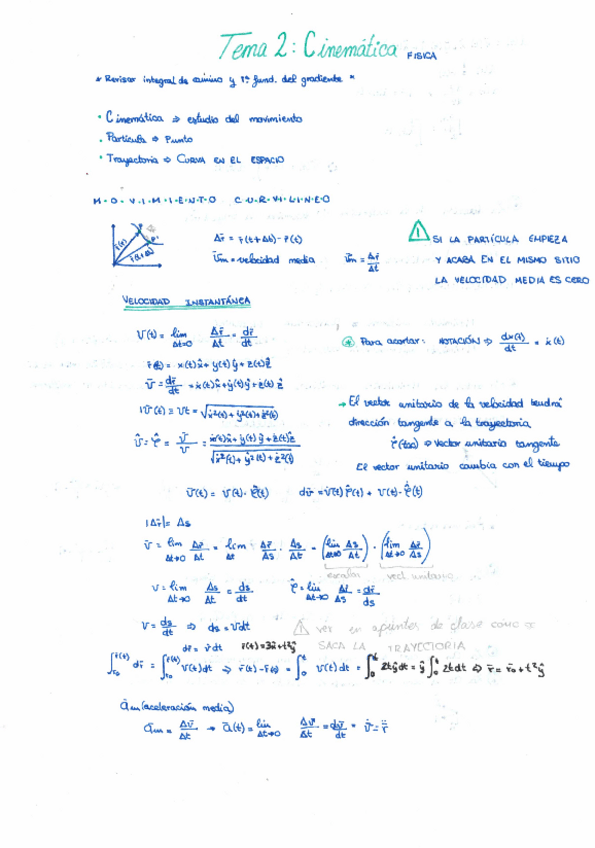 Tema 2: Cinemática FISICA
* Revisar integral de camino y 1º fund. del gradiente *
· Cinemática ⇒ estudio del movimiento
· Partícula ⇒ Punto
· Trayectoria ⇒ CURVA EN EL ESPACIO
M·O·V·I·M·I·E·N·T·O C·U·R·V·I·L·I·N·E·O
r̄(t) r̄(t+Δt)
Δr̄ = r̄(t+Δt) - r̄(t)
v̄m = velocidad media v̄m = Δr̄/Δt
! SI LA PARTÍCULA EMPIEZA
Y ACABA EN EL MISMO SITIO
LA VELOCIDAD MEDIA ES CERO
VELOCIDAD INSTANTÁNEA
v̄(t) = lim Δt=0 Δr̄/Δt = dr̄/dt
* Para acortar: NOTACIÓN ⇒ dx(t)/dt = ẋ(t)
r̄(t) = x(t)x̂ + y(t)ŷ + z(t)ẑ
v̄ = dr̄/dt = ẋ(t)x̂ + ẏ(t)ŷ + ż(t)ẑ
|v̄(t)| = vt = √ẋ²(t) + ẏ²(t) + ż²(t)
→ El vector unitario de la velocidad tendrá
dirección tangente a la trayectoria
⇒ vector unitario tangente
El vector unitario cambia con el tiempo
v̂ = τ̂ = v̄/v = ẋ(t)x̂ + ẏ(t)ŷ + ż(t)ẑ / √ẋ²(t) + ẏ²(t) + ż²(t)
v̄(t) = v(t) · τ̂(t) dv̄ = v̇(t) τ̂(t) + v(t) · τ̂(t)
|Δr̄| = Δs
v̄ = lim Δt→0 Δr̄/Δt = lim Δr̄/Δs · Δs/Δt = (lim Δt→0 Δs/Δt) · (lim Δt→0 Δr̄/Δs)
escalar vect. unitario
v = lim Δt→0 Δs/Δt = ds/dt τ̂ = lim Δt→0 Δr̄/Δs = dr̄/ds
v = ds/dt ⇒ ds = vdt
! ver en apuntes de clase como se
dr̄ = v̄dt r̄(t) = 3x̂ + t²ŷ SACA LA TRAYECTORIA
∫ dr̄ = ∫ v̄(t)dt ⇒ r̄(t) - r̄(0) = ∫₀ᵗ v(t)dt = ∫₀ᵗ 2tŷdt = ŷ∫₀ᵗ 2tdt ⇒ r̄ = r̄₀ + t²ŷ
ām (aceleración media)
ām = Δv̄/Δt → ā(t) = lim Δt→0 Δv̄/Δt = dv̄/dt = v̄̇ = r̄̈